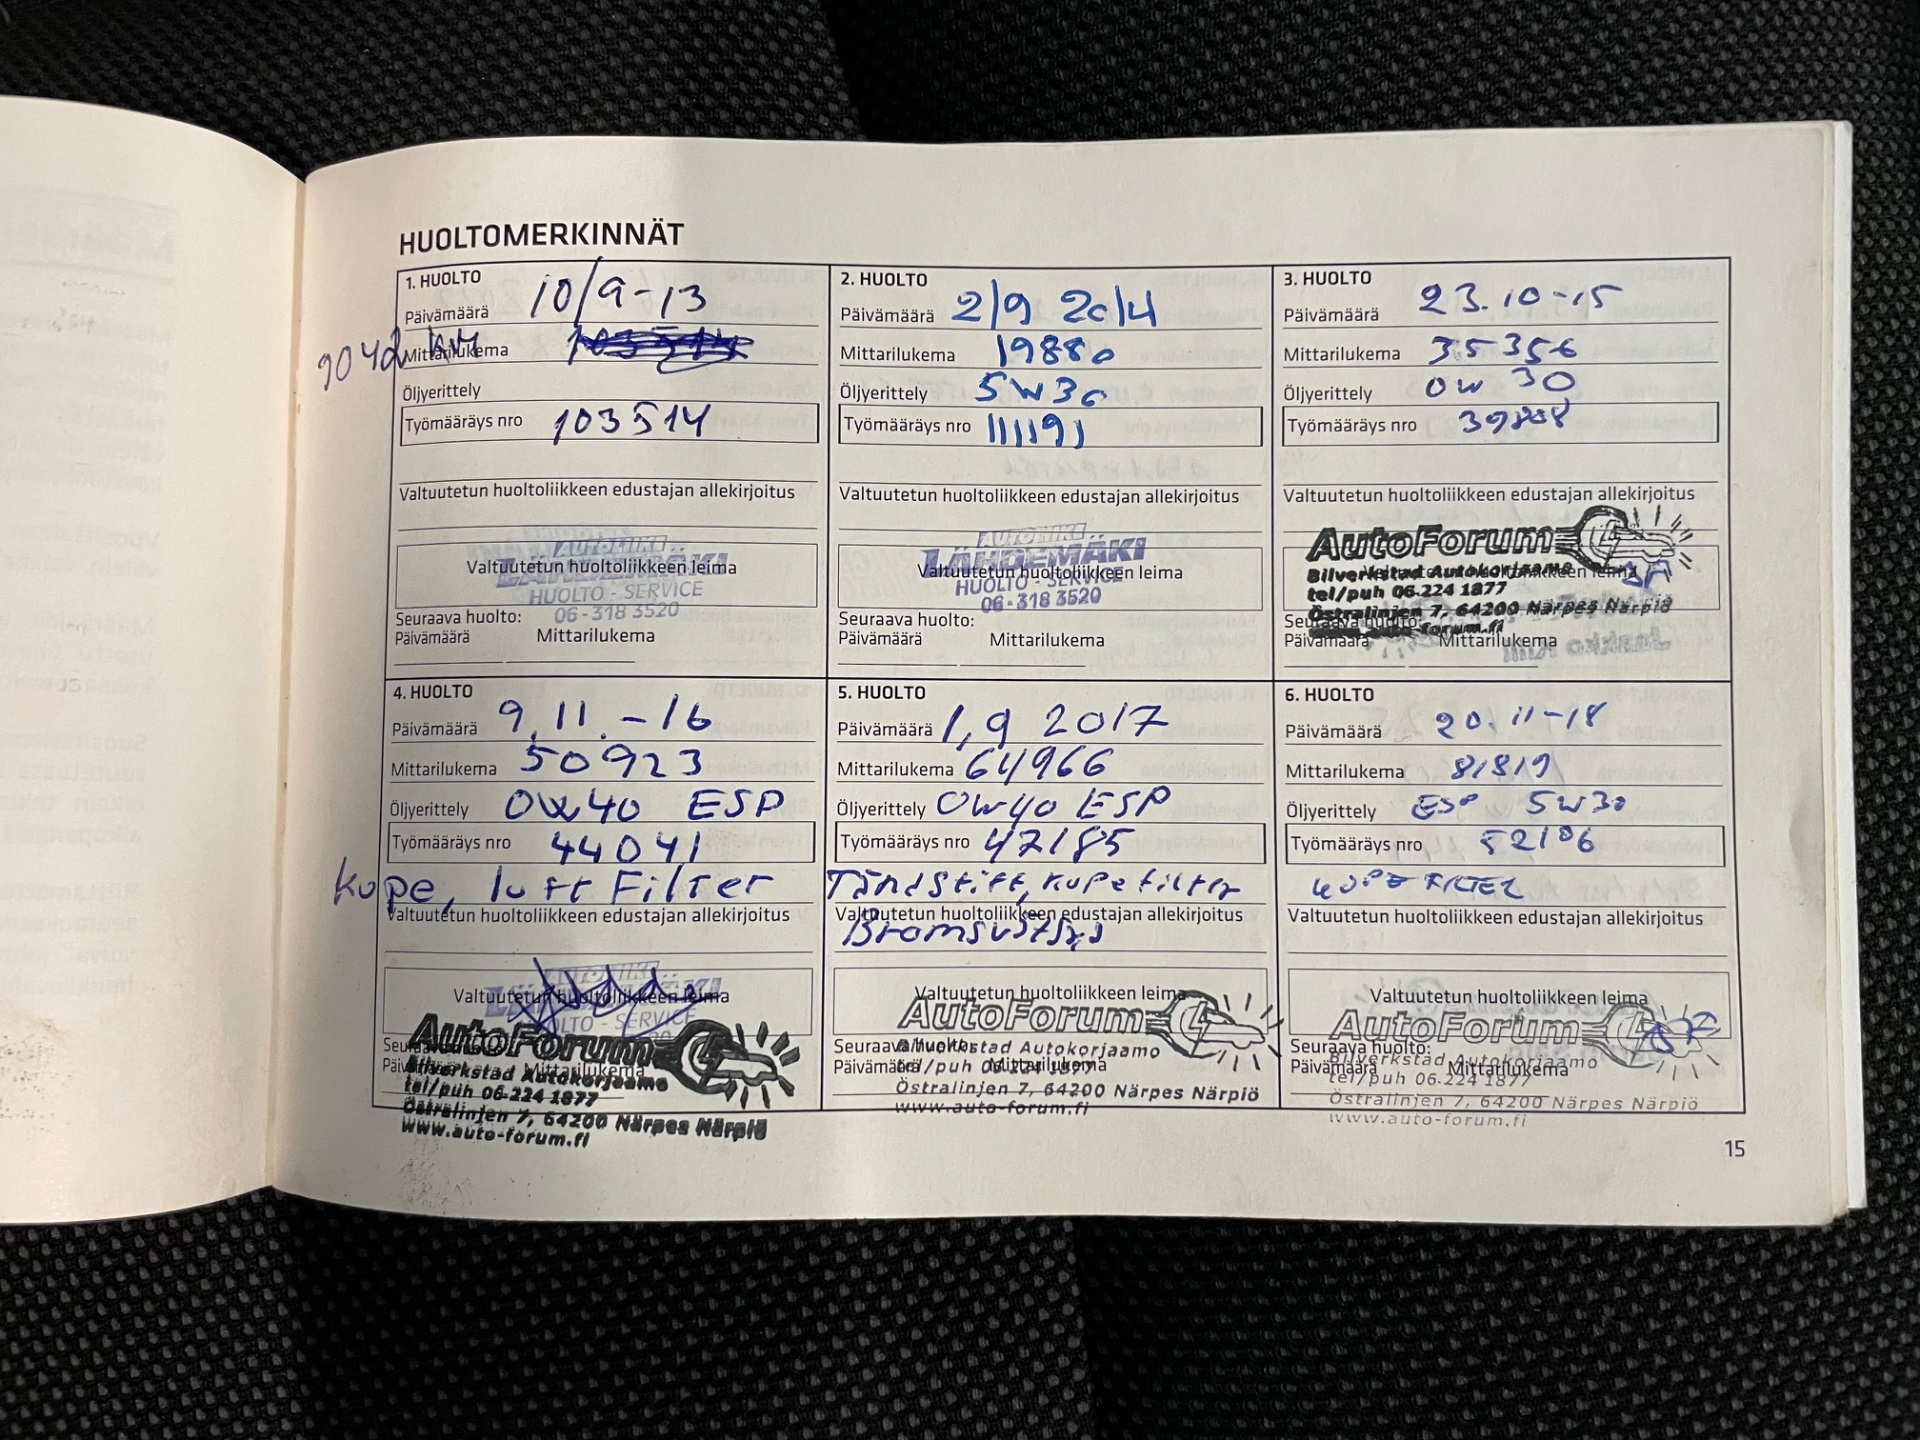 HUOLTOMERKINNÄT
1. HUOLTO
Päivämäärä 10/9-13
9042 km Mittarilukema 103514
Öljyerittely
Työmääräys nro 103514
Valtuutetun huoltoliikkeen edustajan allekirjoitus
AUTOLIIKE
LÄHDEMÄKI
Valtuutetun huoltoliikkeen leima
HUOLTO - SERVICE
06 - 318 3520
Seuraava huolto:
Päivämäärä Mittarilukema
2. HUOLTO
Päivämäärä 2/9 2014
Mittarilukema 19880
Öljyerittely 5W30
Työmääräys nro 111191
Valtuutetun huoltoliikkeen edustajan allekirjoitus
AUTOLIIKE
LÄHDEMÄKI
Valtuutetun huoltoliikkeen leima
HUOLTO - SERVICE
06 - 318 3520
Seuraava huolto:
Päivämäärä Mittarilukema
3. HUOLTO
Päivämäärä 23.10-15
Mittarilukema 35356
Öljyerittely 0W30
Työmääräys nro
Valtuutetun huoltoliikkeen edustajan allekirjoitus
AutoForum
Valtuutetun huoltoliikkeen leima
Bilverkstad Autokorjaamo
tel/puh 06-224 1877
Östralinjen 7, 64200 Närpes Närpiö
www.auto-forum.fi
Seuraava huolto:
Päivämäärä Mittarilukema
4. HUOLTO
Päivämäärä 9.11.-16
Mittarilukema 50923
Öljyerittely 0W40 ESP
Työmääräys nro 44041
kupe, luft Filter
Valtuutetun huoltoliikkeen edustajan allekirjoitus
AUTOLIIKE
LÄHDEMÄKI
Valtuutetun huoltoliikkeen leima
HUOLTO - SERVICE
AutoForum
Seuraava huolto:
Päivämäärä Mittarilukema
Bilverkstad Autokorjaamo
tel/puh 06-224 1877
Östralinjen 7, 64200 Närpes Närpiö
www.auto-forum.fi
5. HUOLTO
Päivämäärä 1,9 2017
Mittarilukema 64966
Öljyerittely 0W40 ESP
Työmääräys nro 47185
Tändstift, kupefilter
Valtuutetun huoltoliikkeen edustajan allekirjoitus
Bromsvätska
Valtuutetun huoltoliikkeen leima
AutoForum
Seuraava huolto:
Päivämäärä Mittarilukema
Bilverkstad Autokorjaamo
tel/puh 06-224 1877
Östralinjen 7, 64200 Närpes Närpiö
www.auto-forum.fi
6. HUOLTO
Päivämäärä 20.11-18
Mittarilukema 81819
Öljyerittely ESP 5W30
Työmääräys nro 52106
KUPE FILTER
Valtuutetun huoltoliikkeen edustajan allekirjoitus
Valtuutetun huoltoliikkeen leima
AutoForum
Seuraava huolto:
Päivämäärä Mittarilukema
Bilverkstad Autokorjaamo
tel/puh 06-224 1877
Östralinjen 7, 64200 Närpes Närpiö
www.auto-forum.fi
15